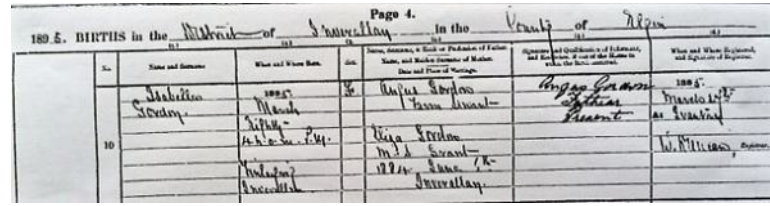 Page 4.
1895. BIRTHS in the District of Inverallan in the County of Elgin
No. Name and Surname When and Where Born. Sex Name, Surname, & Rank or Profession of Father. Name, and Maiden Surname of Mother. Date and Place of Marriage. Signature and Qualification of Informant, and Residence, if out of the House in which the Birth occurred. When and Where Registered, and Signature of Registrar.
10
Isabella
Gordon
1895
March
4 h. 0 m. P.M.
Inverallan
F
Angus Gordon
Farm Servant
Eliza Gordon
M.S. Grant
June
Inverallan
Angus Gordon
Father
Present
1895
March
At Grantown
Registrar